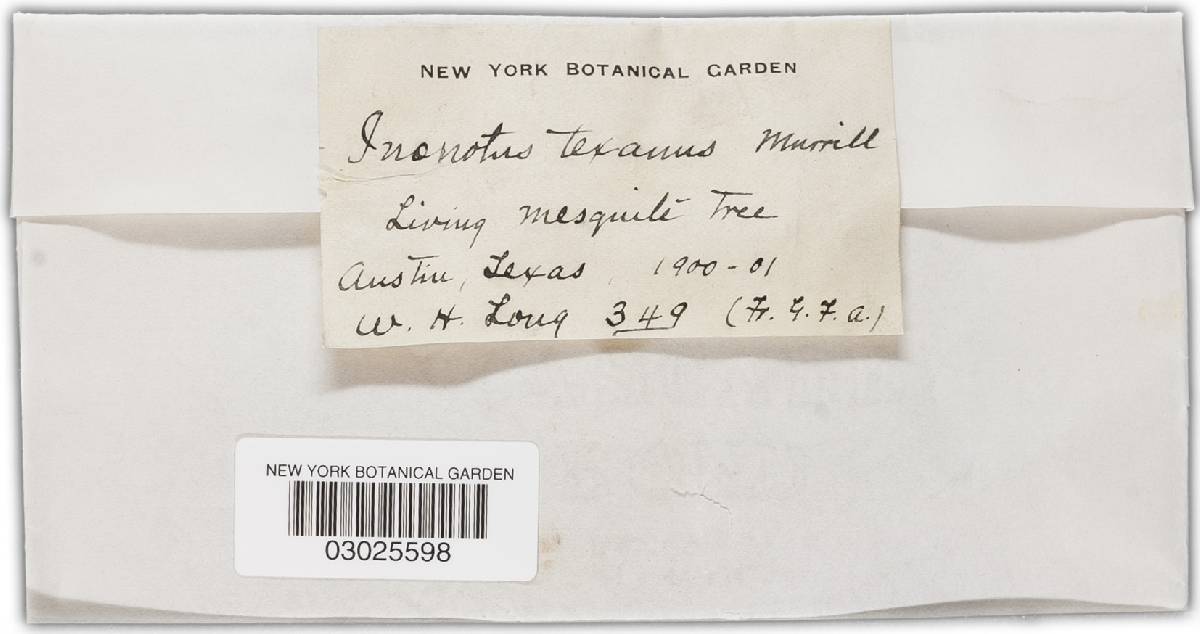 NEW YORK BOTANICAL GARDEN
Inonotus texanus Murrill
Living mesquite Tree
Austin, Texas, 1900-01
W. H. Long 349 (Fr. G. F. A.)
NEW YORK BOTANICAL GARDEN
03025598